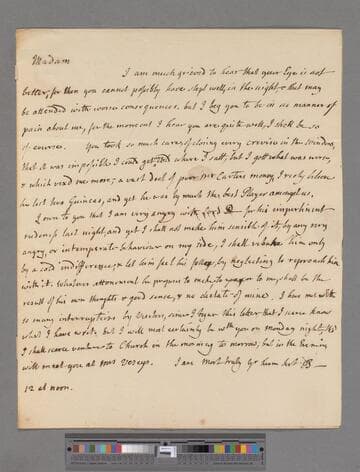 Madam
I am much grieved to hear that your Eye is not
better, for then you cannot possibly have slept well, in the night & that may
be attended with worse consequences, but I beg you to be in no manner of
pain about me, for the moment I hear you are quite well, I shall be so
of course. You took so much care of closing every crevise in the Windows,
that it was impossible I could get cold where I sat, but I got what was worse,
& which vex'd me more; a vast deal of poor Mr Carters money, I realy believe
his last two Guineas, and yet he was by much the best Player amongst us.
I own to you that I am very angry with for his impertinent
rudeness last night, and yet I shall not make him sensible of it, by any very
angry, or intemperate behaviour on my side, I shall him only
by a cold indifference, & let him feel his folly, by neglecting to reproach him
with it. Whatever attonement he propose to make to you or to me, shall be the
result of his own thoughts & good sense, & no dictate of mine. I have met with
so many interruptions by Visitors, since I began this letter that I scarce know
what I have wrote, but I will most certainly be with you on Monday night,
I shall scarce venture to Church in the morning to morrow, but in the Evening
will meet you at Mrs Veseys. I am Most truly Yr hum
12 at noon.